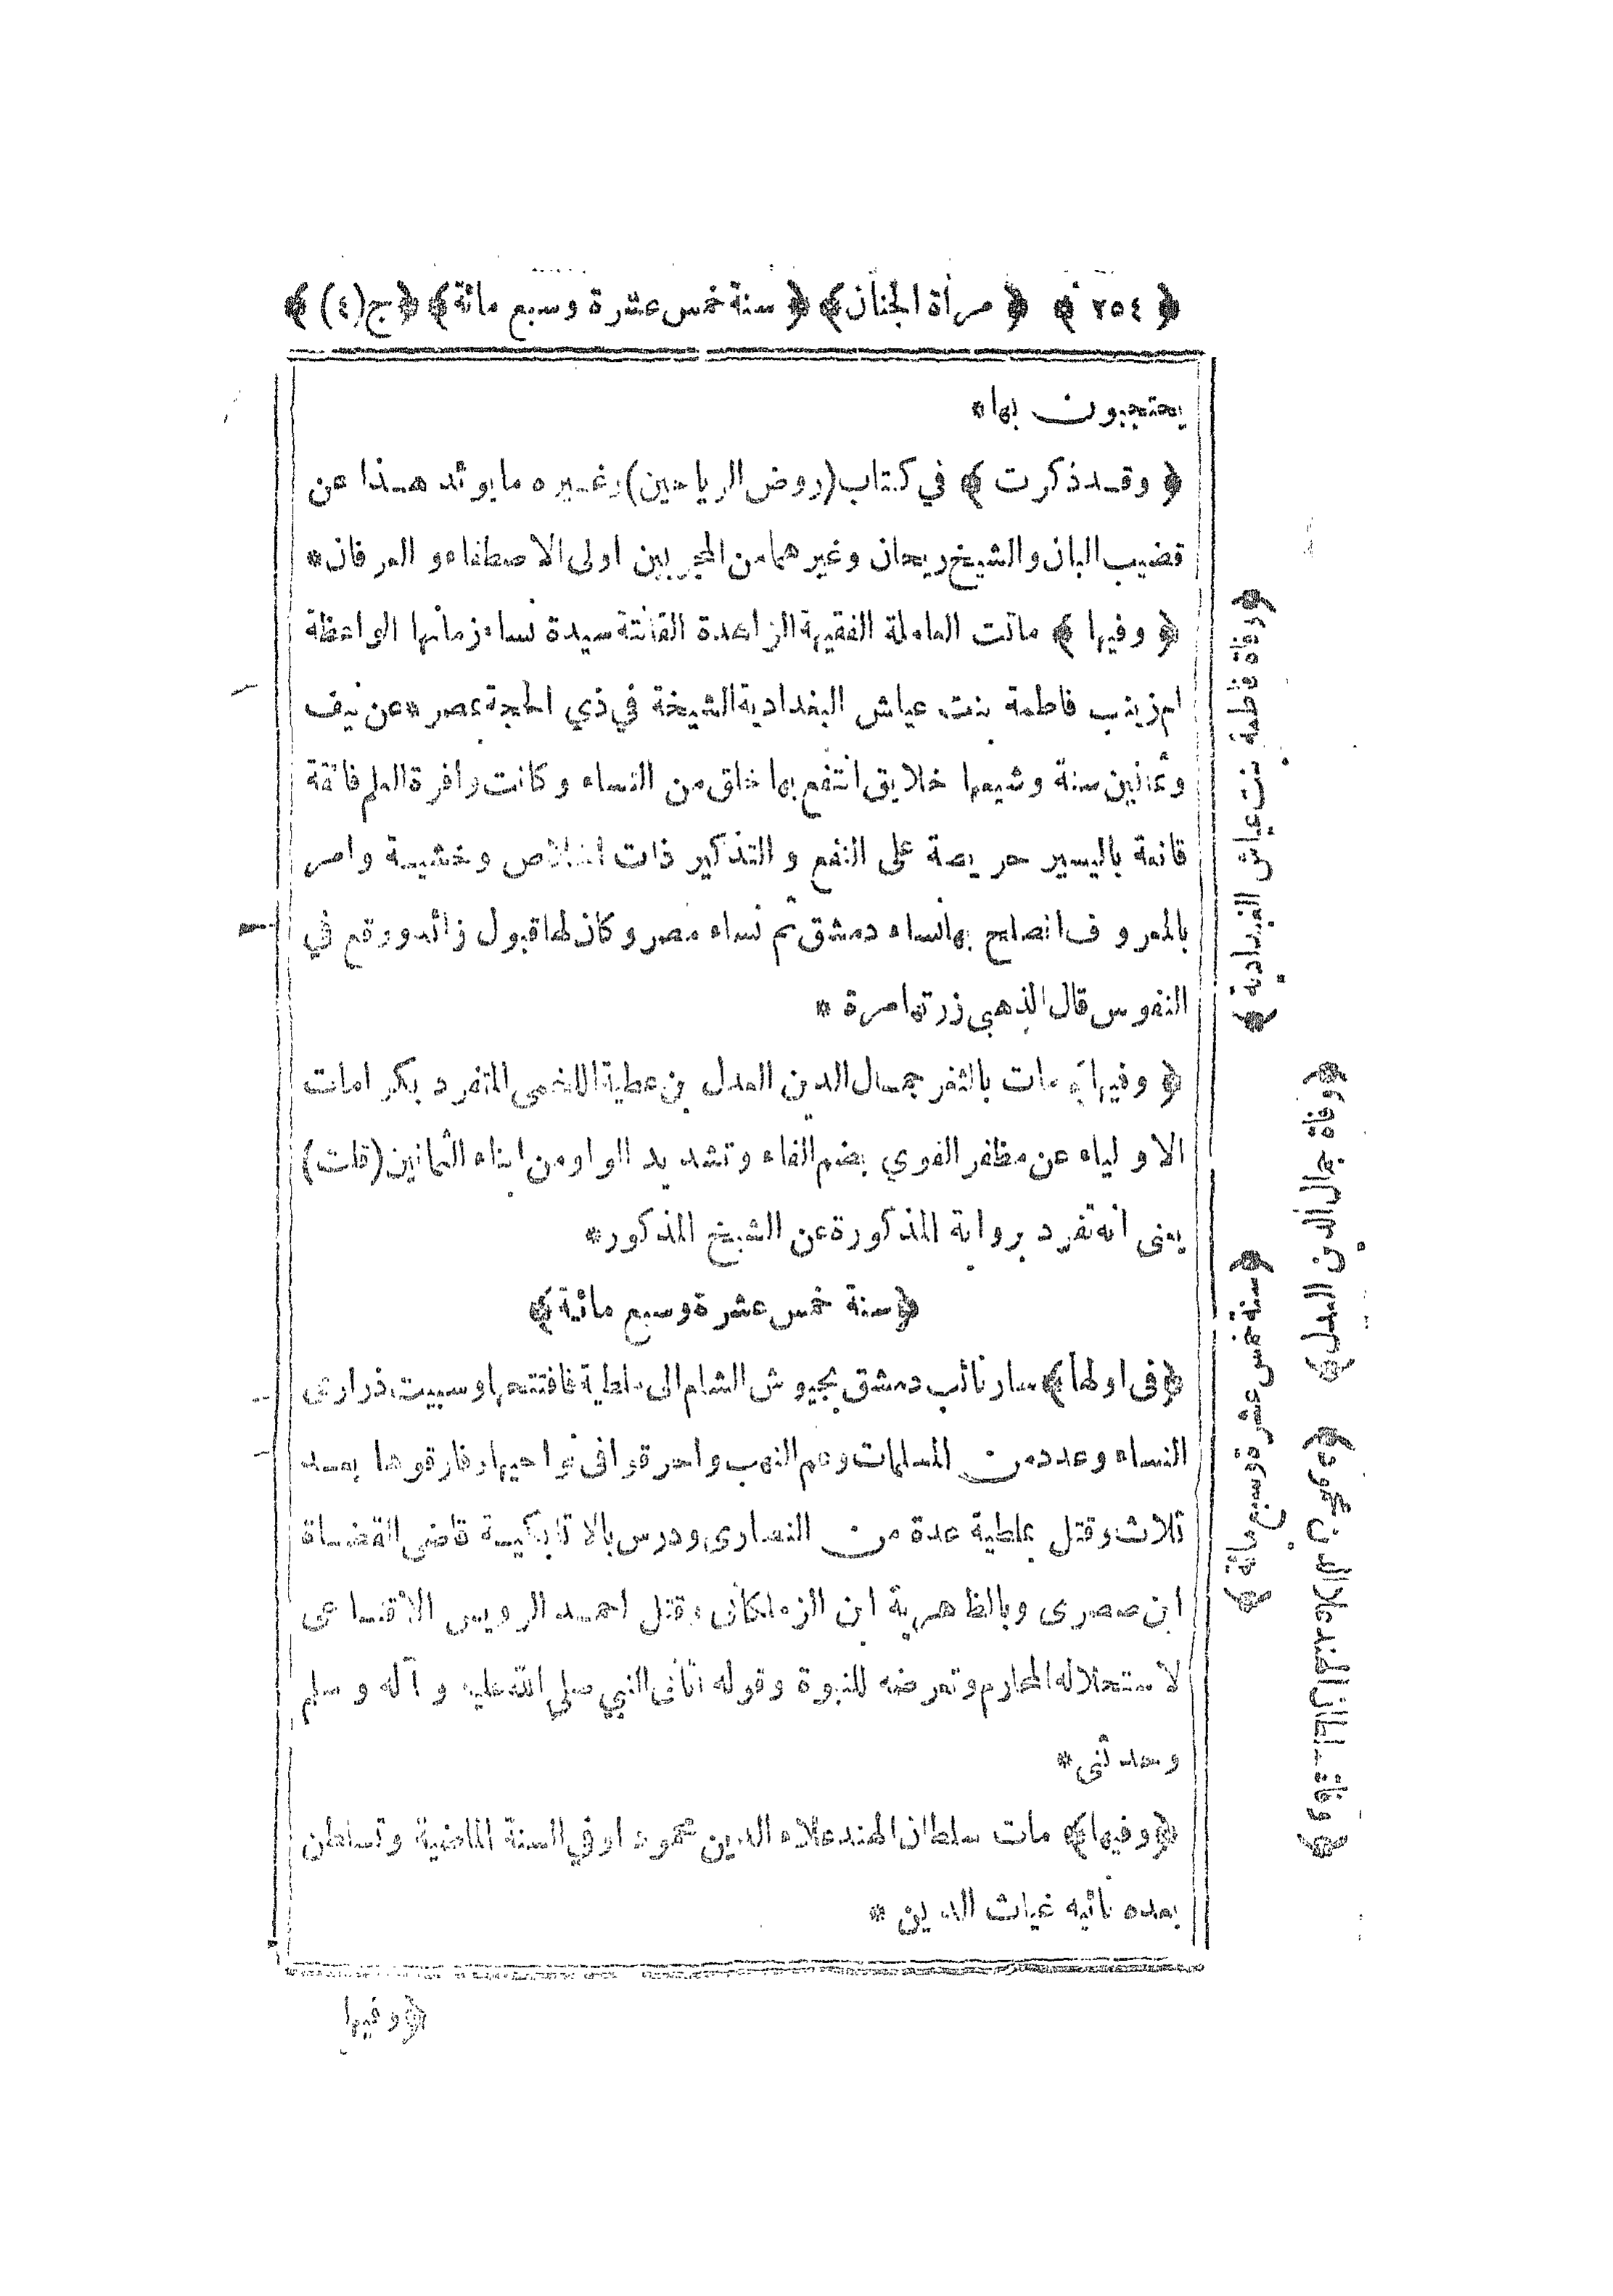 ﴿ ٢٥٤ ﴾ ﴿ مرأة الجنان ﴾ ﴿ سنة خمس عشرة وسبع مائة ﴾ ﴿ ج (٤) ﴾
يحتجبون بها*
﴿ وقد ذكرت ﴾ في كتاب (روض الرياحين) وغيره ما يوئد هذا عن
قضيب البان والشيخ ريحان وغيرهما من المجربين اولى الاصطفاء والعرفان*
﴿ وفيها ﴾ ماتت العاملة الفقيهة الزاهدة القانتة سيدة نساء زمانها الواعظة
ام زينب فاطمة بنت عياش البغدادية الشيخة في ذي الحجة بمصر* عن نيف
وثمانين سنة وشيعها خلايق انتفع بها خلق من النساء وكانت وافرة العلم فائقة
قانعة باليسير حريصة على النفع والتذكير ذات اخلاص وخشية وامر
بالمعروف انصلح بها نساء دمشق ثم نساء مصر وكان لها قبول زائد ووقع في
النفوس قال الذهبي زرتها مرة *
﴿ وفيها ﴾ مات بالثغر جمال الدين العدل بن عطية اللخمى المتفرد بكرامات
الاولياء عن مظفر الفوي بضم الفاء وتشديد الواو من ابناء الثمانين (قلت)
يعنى انه تفرد برواية المذكورة عن الشيخ المذكور*
﴿ سنة خمس عشرة وسبع مائة ﴾
﴿ فى اولها ﴾ سار نائب دمشق بجيوش الشام الى ملطية فافتتحها وسبيت ذرارى
النساء وعدد من المسلمات وعم النهب واحرقوا فى نواحيها وفارقوها بعد
ثلاث وقتل بملطية عدة من النصارى ودرس بالاتابكية قاضى القضاة
ابن صصرى وبالظاهرية ابن الزملكانى وقتل احمد الرويس الاقباعى
لاستحلاله المحارم وتعرضه للنبوة وقوله اتانى النبي صلى الله عليه وآله وسلم
وحدثنى*
﴿ وفيها ﴾ مات سلطان الهند علاء الدين محمود او في السنة الماضية وتسلطن
بعده نائبه غياث الدين *
﴿ وفيها
﴿ وفاة فاطمة بنت عياش البغدادية ﴾
﴿ وفاة جمال الدين العدل ﴾
﴿ سنة خمس عشرة وسبع مائة ﴾
﴿ وفاة سلطان الهند علاء الدين محمود ﴾